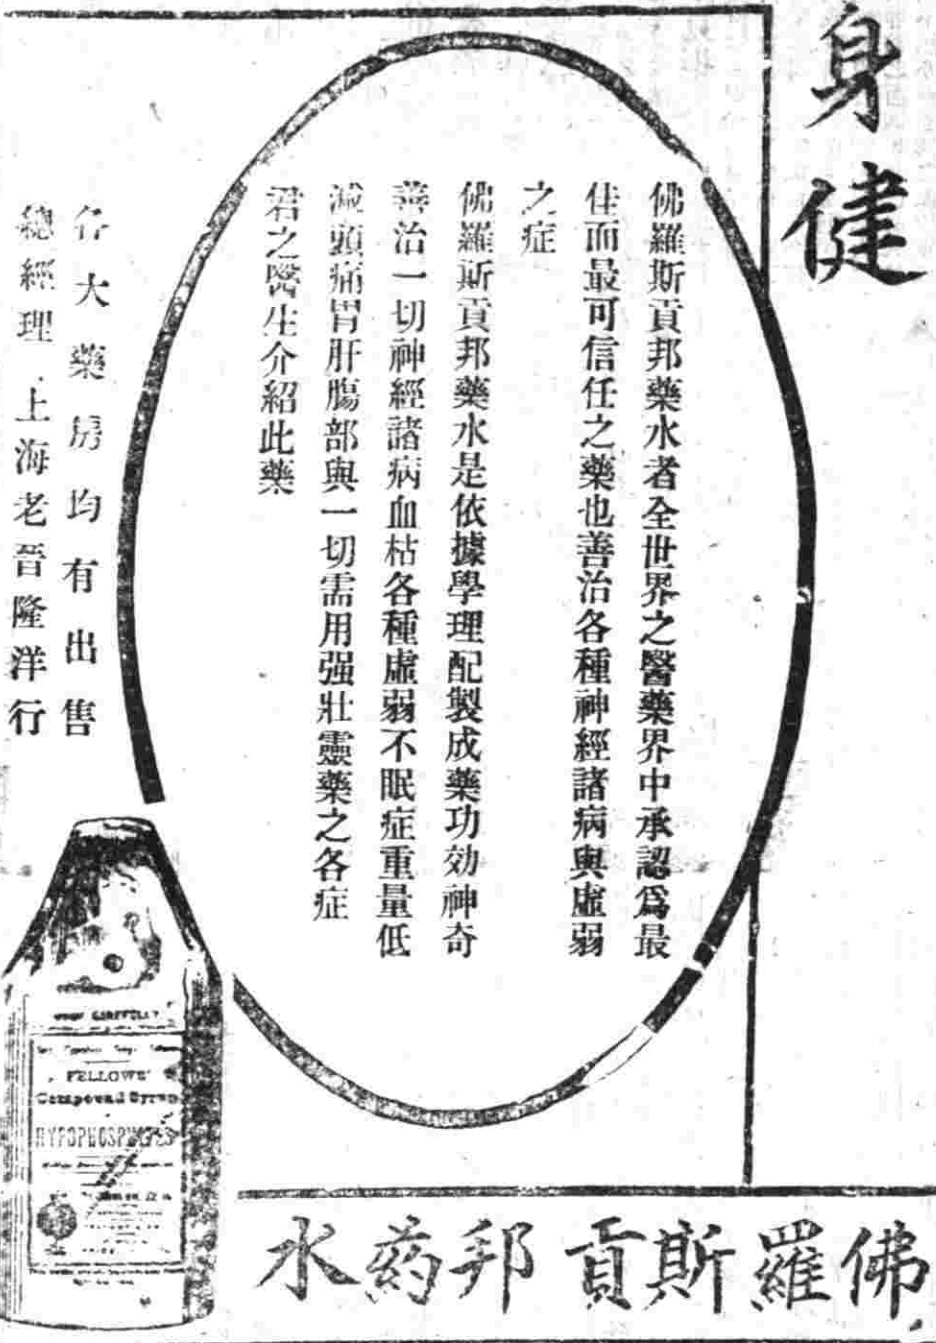 身健
佛羅斯貢邦藥水者全世界之醫藥界中承認爲最
佳而最可信任之藥也善治各種神經諸病與虛弱
之症
佛羅斯貢邦藥水是依據學理配製成藥功効神奇
善治一切神經諸病血枯各種虛弱不眠症重量低
減頭痛胃肝腸部與一切需用强壯靈藥之各症
君之醫生介紹此藥
各大藥房均有出售
總經理上海老晉隆洋行
FELLOWS'
Compound Syrup
HYPOPHOSPHITES
佛羅斯貢邦药水